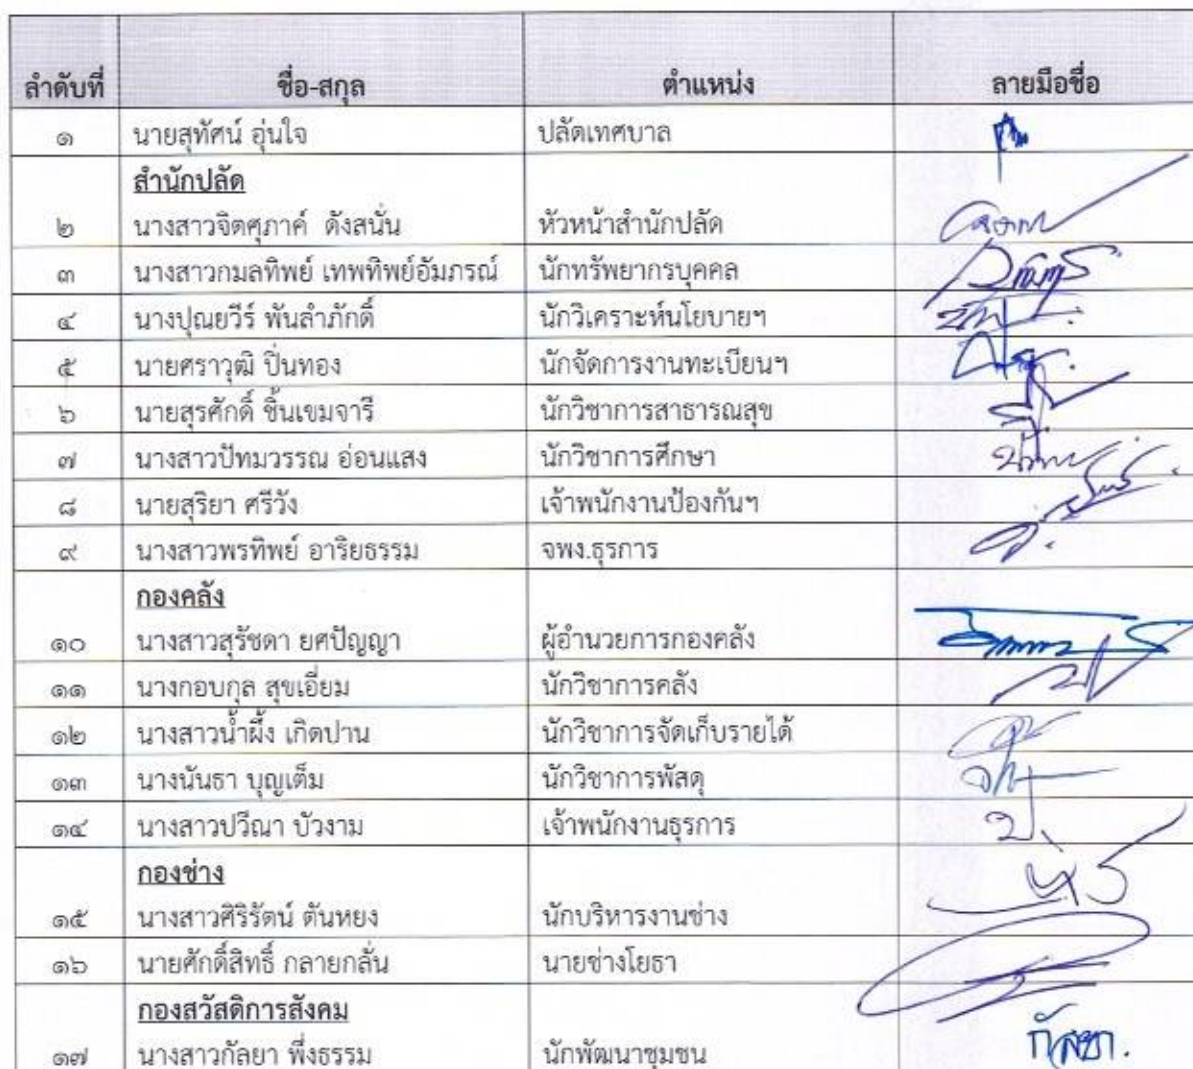 ลำดับที่ ชื่อ-สกุล ตำแหน่ง ลายมือชื่อ
๑ นายสุทัศน์ อุ่นใจ ปลัดเทศบาล
สำนักปลัด
๒ นางสาวจิตศุภาค์ ดังสนั่น หัวหน้าสำนักปลัด
๓ นางสาวกมลทิพย์ เทพทิพย์อัมภรณ์ นักทรัพยากรบุคคล
๔ นางปุณยวีร์ พันลำภักดิ์ นักวิเคราะห์นโยบายฯ
๕ นายศราวุฒิ ปิ่นทอง นักจัดการงานทะเบียนฯ
๖ นายสุรศักดิ์ ชิ้นเขมจารี นักวิชาการสาธารณสุข
๗ นางสาวปัทมวรรณ อ่อนแสง นักวิชาการศึกษา
๘ นายสุริยา ศรีวัง เจ้าพนักงานป้องกันฯ
๙ นางสาวพรทิพย์ อาริยธรรม จพง.ธุรการ
กองคลัง
๑๐ นางสาวสุรัชดา ยศปัญญา ผู้อำนวยการกองคลัง
๑๑ นางกอบกุล สุขเอี่ยม นักวิชาการคลัง
๑๒ นางสาวน้ำผึ้ง เกิดปาน นักวิชาการจัดเก็บรายได้
๑๓ นางนันธา บุญเต็ม นักวิชาการพัสดุ
๑๔ นางสาวปวีณา บัวงาม เจ้าพนักงานธุรการ
กองช่าง
๑๕ นางสาวศิริรัตน์ ตันหยง นักบริหารงานช่าง
๑๖ นายศักดิ์สิทธิ์ กลายกลั่น นายช่างโยธา
กองสวัสดิการสังคม
๑๗ นางสาวกัลยา พึ่งธรรม นักพัฒนาชุมชน กัลยา.